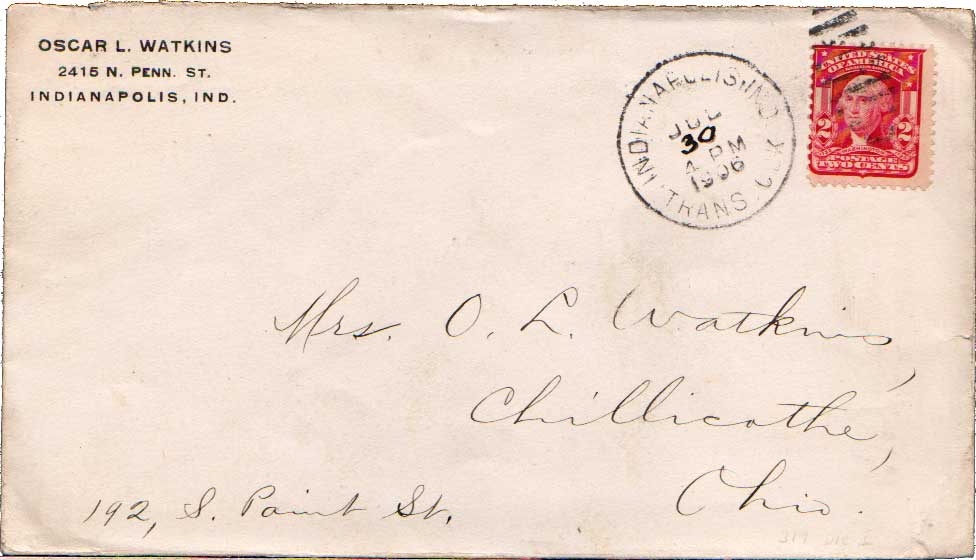 OSCAR L. WATKINS
2415 N. PENN. ST.
INDIANAPOLIS, IND.
INDIANAPOLIS, IND.
JUL
30
4 PM
1906
TRANS. CLK
UNITED STATES
OF AMERICA
2 2
WASHINGTON
POSTAGE
TWO CENTS
Mrs. O. L. Watkins,
Chillicothe,
Ohio.
192, S. Paint St.